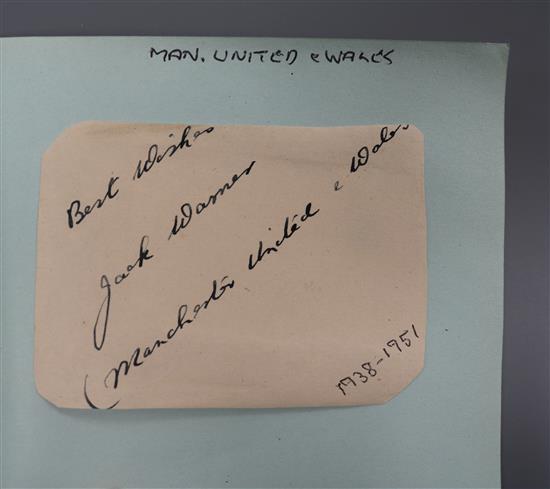 MAN. UNITED & WALES
Best Wishes
Jack Warner
(Manchester United & Wales
1938-1951